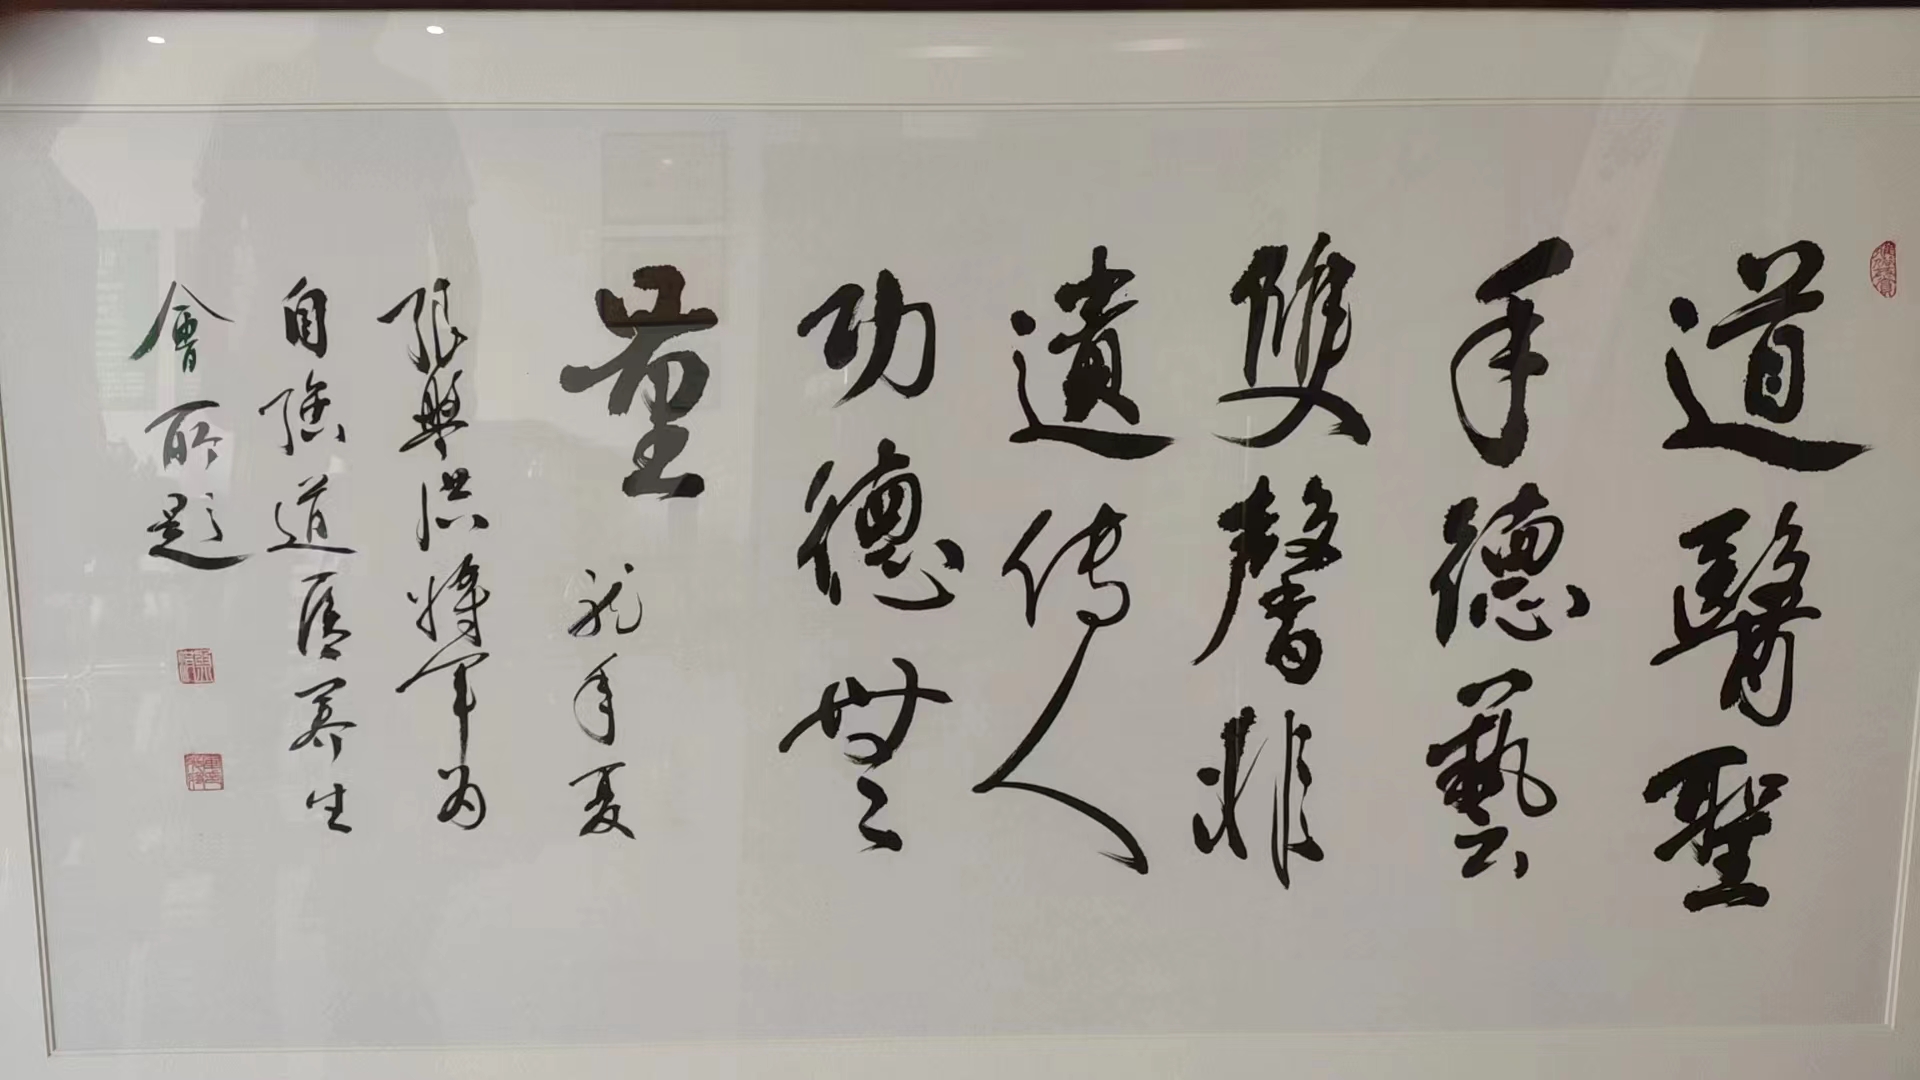 道醫聖
手德藝
雙馨非
遺傳人
功德無
量 龍年夏
張興洪將軍為
自強道醫養生
會所題